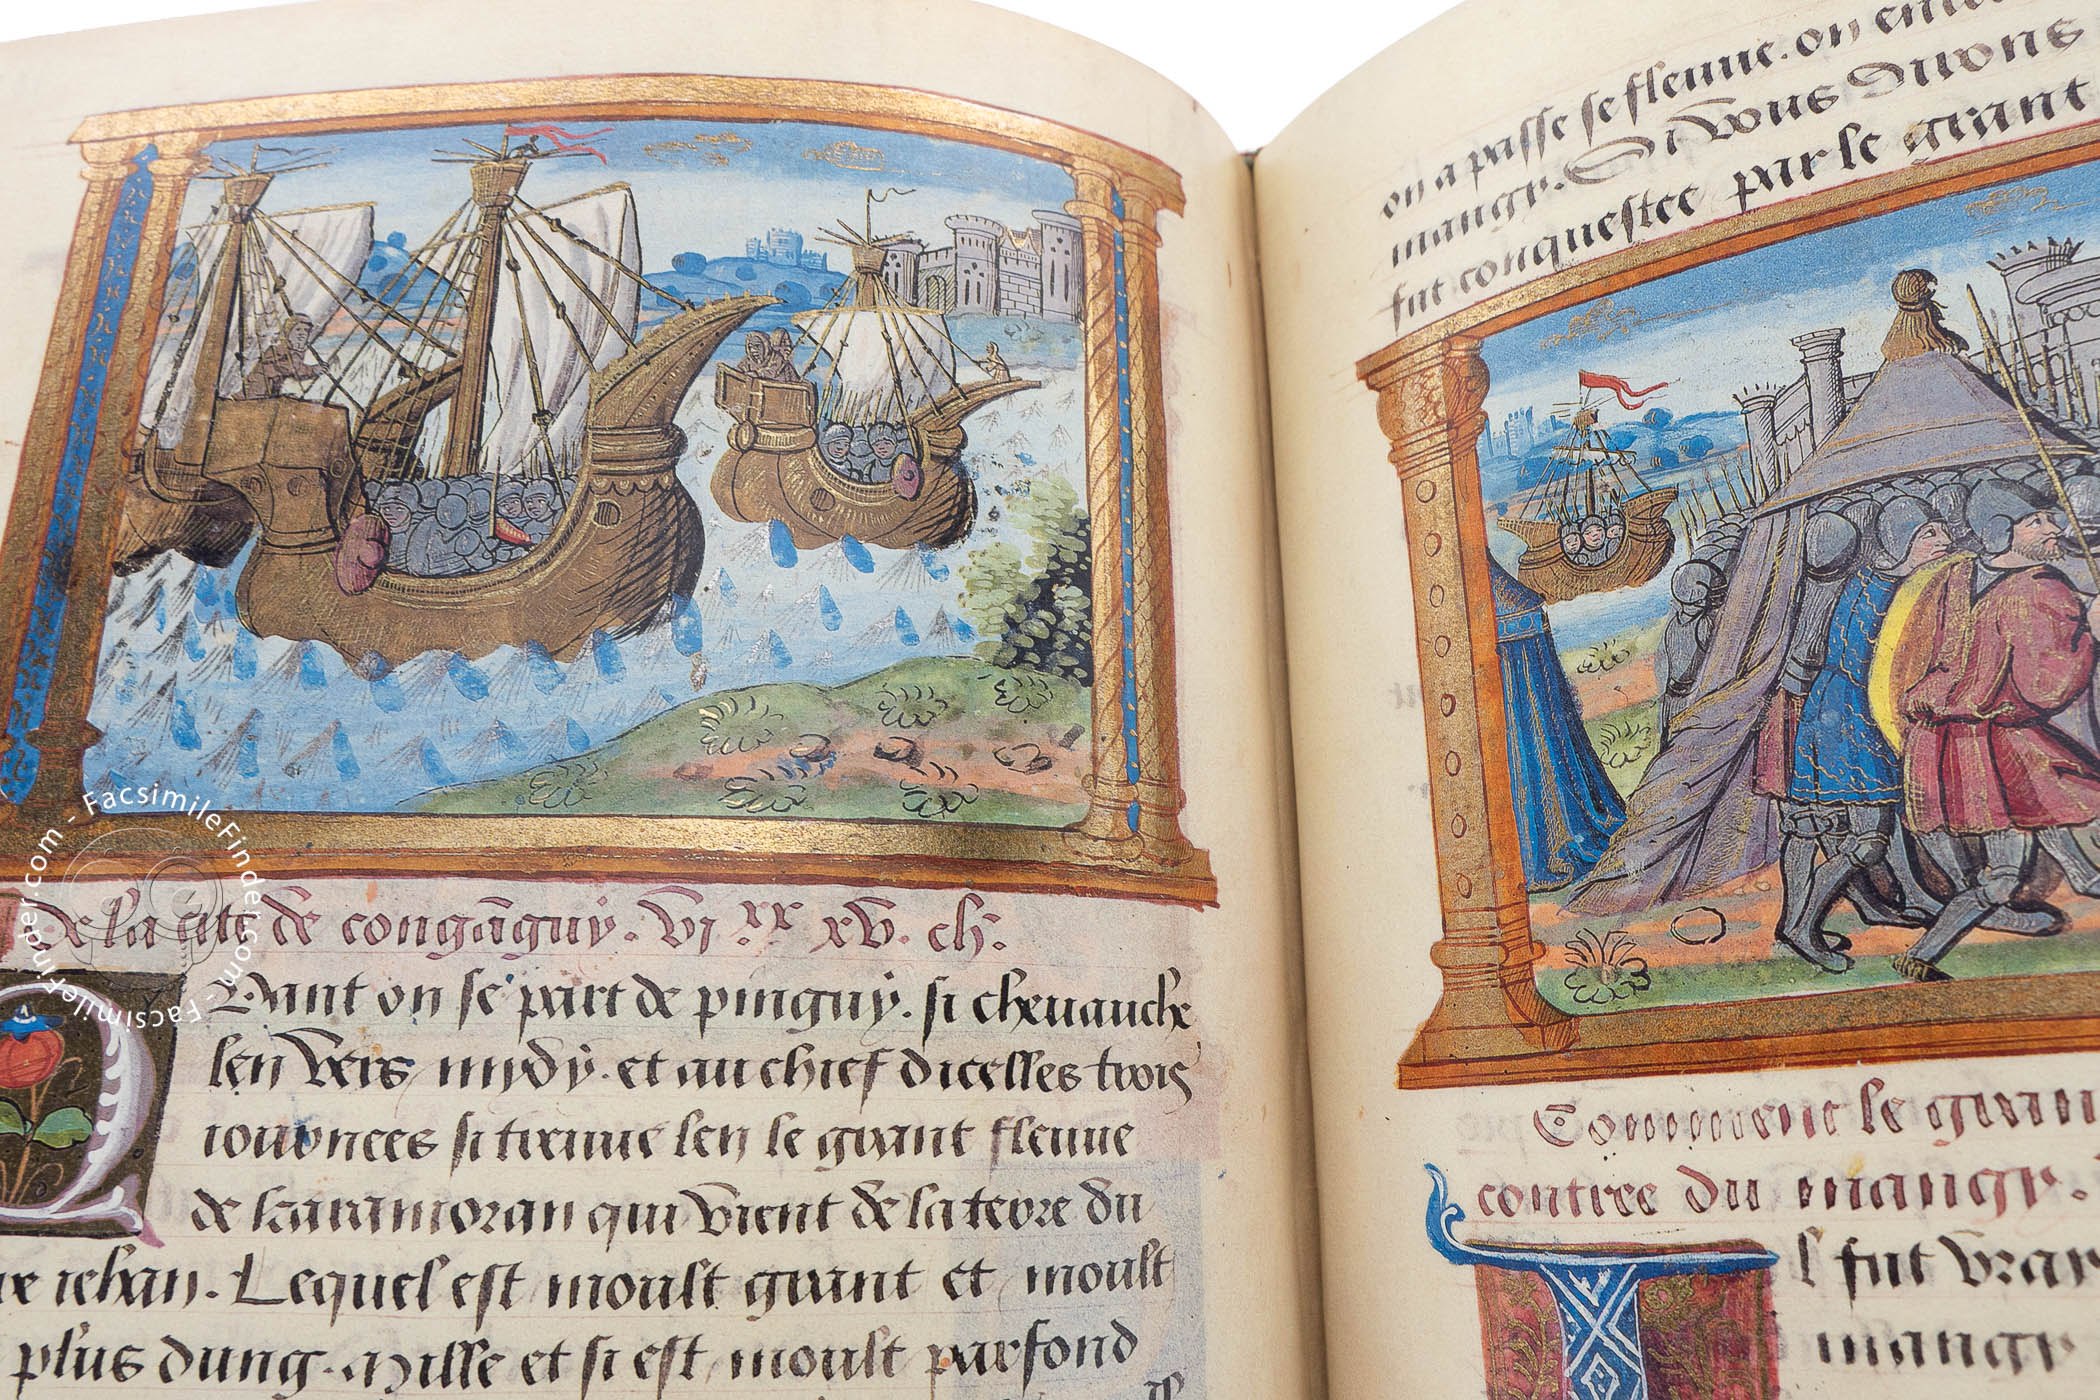 De la cite de congāguy. vi.xx xv. ch.
Quant on se part de pinguy. si cheuauche
len vers mydy. et au chief dicelles trois
iournees si treuue len le grant fleuue
de karamoran qui vient de la terre du
iehan. Lequel est moult grant et moult
plus dung. Mille et si est moult parfond
on a passe se fleuue. on
mangy. Si vous dirons
fut conquestee par le grant
Comment le gran
contree du mangy.
Il fut vray
mangy
FacsimileFinder.com - FacsimileFinder.com -